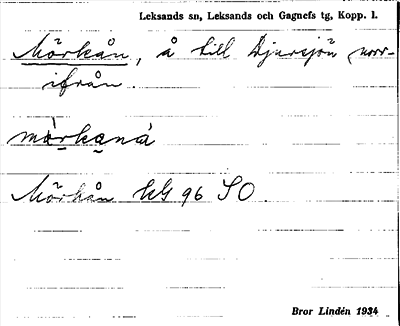 Leksands sn, Leksands och Gagnefs tg, Kopp. l.
Mörkån, å till Djursjön norr-
ifrån.
Mörkån GS 96 SO.
Bror Lindén 1934